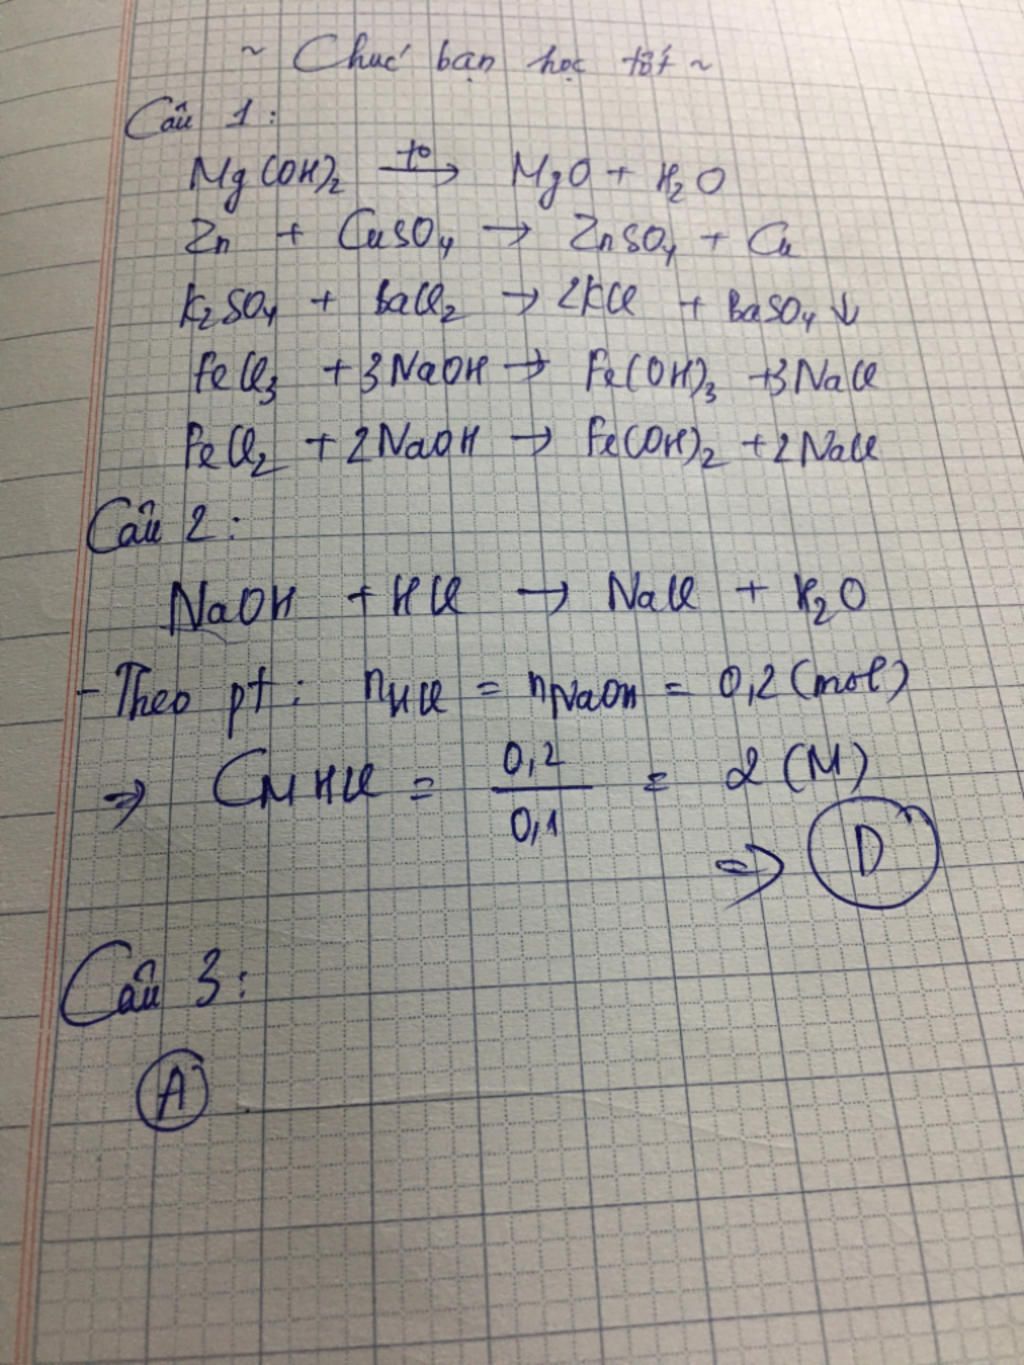 ~ Chúc bạn học tốt ~
Câu 1:
Mg(OH)₂ --t°--> MgO + H₂O
Zn + CuSO₄ → ZnSO₄ + Cu
K₂SO₄ + BaCl₂ → 2KCl + BaSO₄↓
FeCl₃ + 3NaOH → Fe(OH)₃ + 3NaCl
FeCl₂ + 2NaOH → Fe(OH)₂ + 2NaCl
Câu 2:
NaOH + HCl → NaCl + H₂O
- Theo pt: nHCl = nNaOH = 0,2 (mol)
⇒ CM HCl = 0,2 / 0,1 = 2 (M)
⇒ D
Câu 3:
A